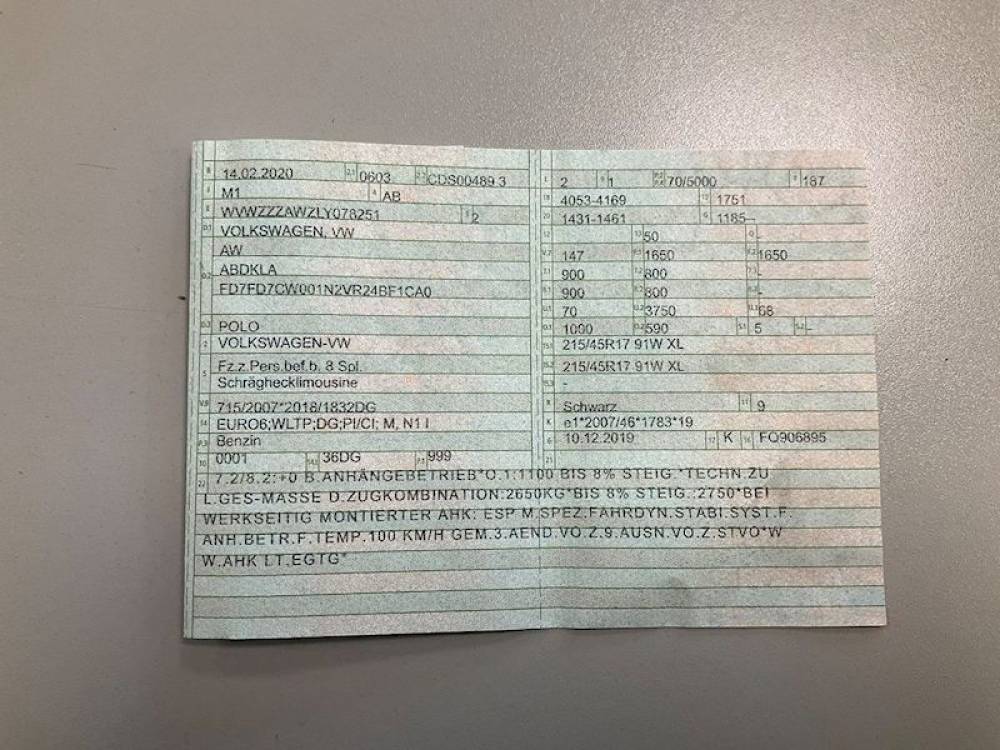 B 14.02.2020 2.1 0603 2.2 CDS00489 3
J M1 4 AB
E WVWZZZAWZLY078251 3 2
D.1 VOLKSWAGEN, VW
AW
D.2 ABDKLA
FD7FD7CW001N2VR24BF1CA0
D.3 POLO
2 VOLKSWAGEN-VW
5 Fz.z.Pers.bef.b. 8 Spl.
Schräghecklimousine
V.9 715/2007*2018/1832DG
14 EURO6;WLTP;DG;PI/CI; M, N1 I
P.3 Benzin
10 0001 14.1 36DG P.1 999
L 2 9 1 P.2 P.4 70/5000 T 187
18 4053-4169 19 1751
20 1431-1461 G 1185--
12 - 13 50 Q -
V.7 147 F.1 1650 F.2 1650
7.1 900 7.2 800 7.3 -
8.1 900 8.2 800 8.3 -
U.1 70 U.2 3750 U.3 68
O.1 1000 O.2 590 S.1 5 S.2 -
15.1 215/45R17 91W XL
15.2 215/45R17 91W XL
15.3 -
R Schwarz 11 9
K e1*2007/46*1783*19
6 10.12.2019 17 K 16 FO906895
21
22 7.2/8.2:+0 B.ANHÄNGEBETRIEB*O.1:1100 BIS 8% STEIG.*TECHN.ZU
L.GES-MASSE D.ZUGKOMBINATION:2650KG*BIS 8% STEIG.:2750*BEI
WERKSEITIG MONTIERTER AHK: ESP M.SPEZ.FAHRDYN.STABI.SYST.F.
ANH.BETR.F.TEMP.100 KM/H GEM.3.AEND.VO.Z.9.AUSN.VO.Z.STVO*W
W.AHK LT.EGTG*